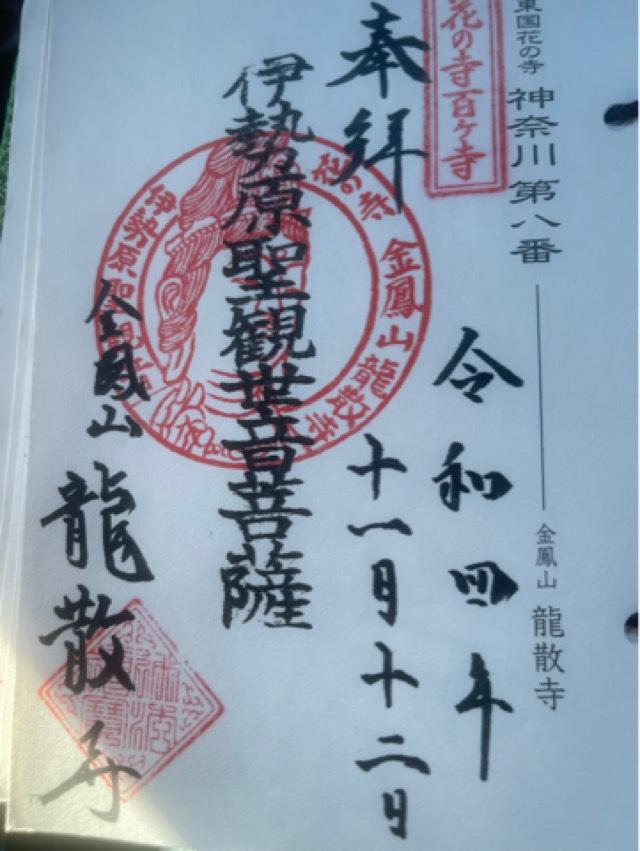 東国花の寺 神奈川第八番 金鳳山 龍散寺
花の寺百ケ寺
令和四年
十一月十二日
奉拝
伊勢原聖観世音菩薩
花の寺 金鳳山龍散寺
伊勢原聖観
金鳳山
龍散寺